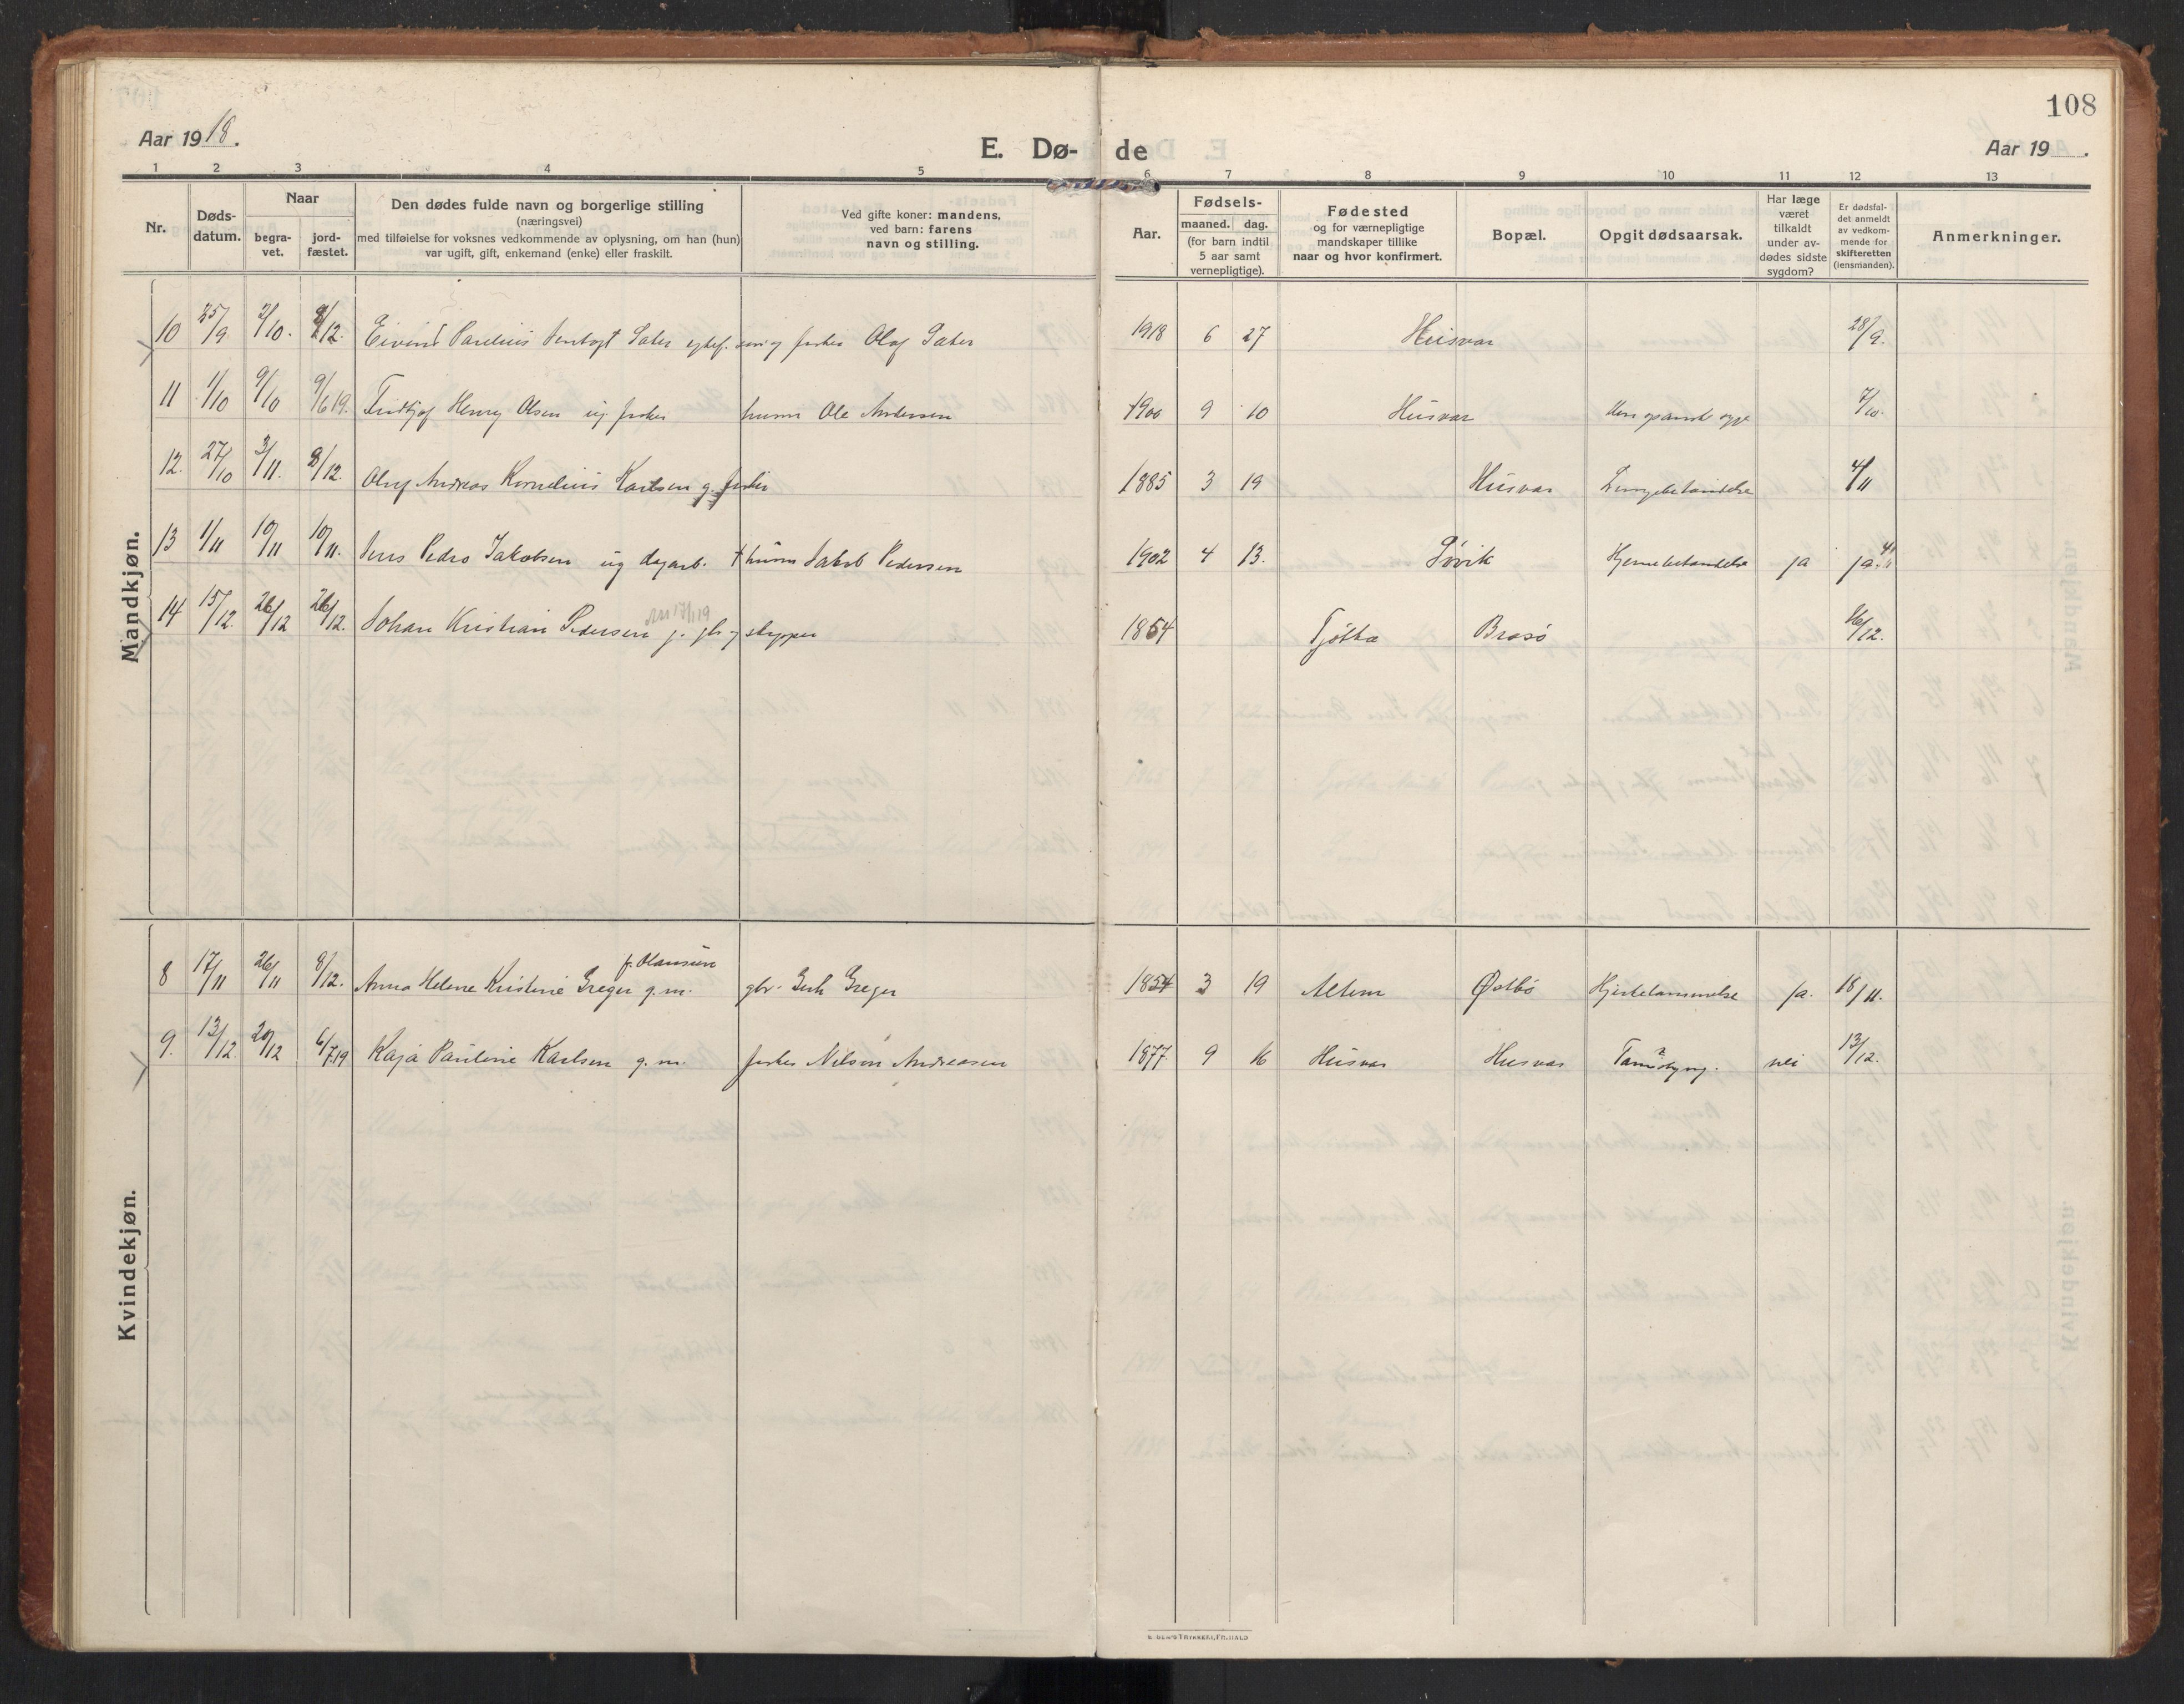 108
Aar 1918.
E. Dø- de
Aar 19 .
1 2 3 4 5 6 7 8 9 10 11 12 13
Nr.
Døds-
datum.
Naar
begra-
vet.
jord-
fæstet.
Den dødes fulde navn og borgerlige stilling
(næringsvei)
med tilføielse for voksnes vedkommende av oplysning, om han (hun)
var ugift, gift, enkemand (enke) eller fraskilt.
Ved gifte koner: mandens,
ved barn: farens
navn og stilling.
Aar.
Fødsels-
maaned. dag.
(for barn indtil
5 aar samt
vernepligtige).
Fødested
og for værnepligtige
mandskaper tillike
naar og hvor konfirmert.
Bopæl.
Opgit dødsaarsak.
Har læge
været
tilkaldt
under av-
dødes sidste
sygdom?
Er dødsfal-
det anmeldt
av vedkom-
mende for
skifteretten
(lensmanden).
Anmerkninger.
Mandkjøn.
10 25/9 2/10. 8/12. Eivind Parelius Sæter egtef. søn og fisker Olaf Sæter 1918 6 27 Husvær 28/9.
11 1/10 9/10 9/6 19. Fridtjof Henry Olsen ug. fisker husm Ole Andersen 1900 9 10 Husvær spansk syge 7/10.
12. 27/10 3/11. 8/12. Olaf Andreas Kornelius Karlsen g. fisker 1885 3 19 Husvær Lungebetændelse 4/11
13 1/11 10/11 10/11. Jens Pedro Jakobsen ug dagarb. † husm Jakob Pedersen 1902 4 13. Søvik Hjernebetændelse ja ja 4/11
14 15/12. 26/12 26/12. Johan Kristian Pedersen g. gbr og skipper 1854 Tjøtta Brasø 16/12.
Kvindekjøn.
f. Olaussen
8 17/11 26/11 8/12. Anna Helene Kristine Greger g.m. gbr. Greger 1854 3 19 Altern Østbø Hjertelammelse ja. 18/11.
9. 13/12. 20/12 6/7 19 Kaja Pauline Karlsen g.m. fisker Nilson Andreasen 1877 9 16 Husvær Husvær nei 13/12.